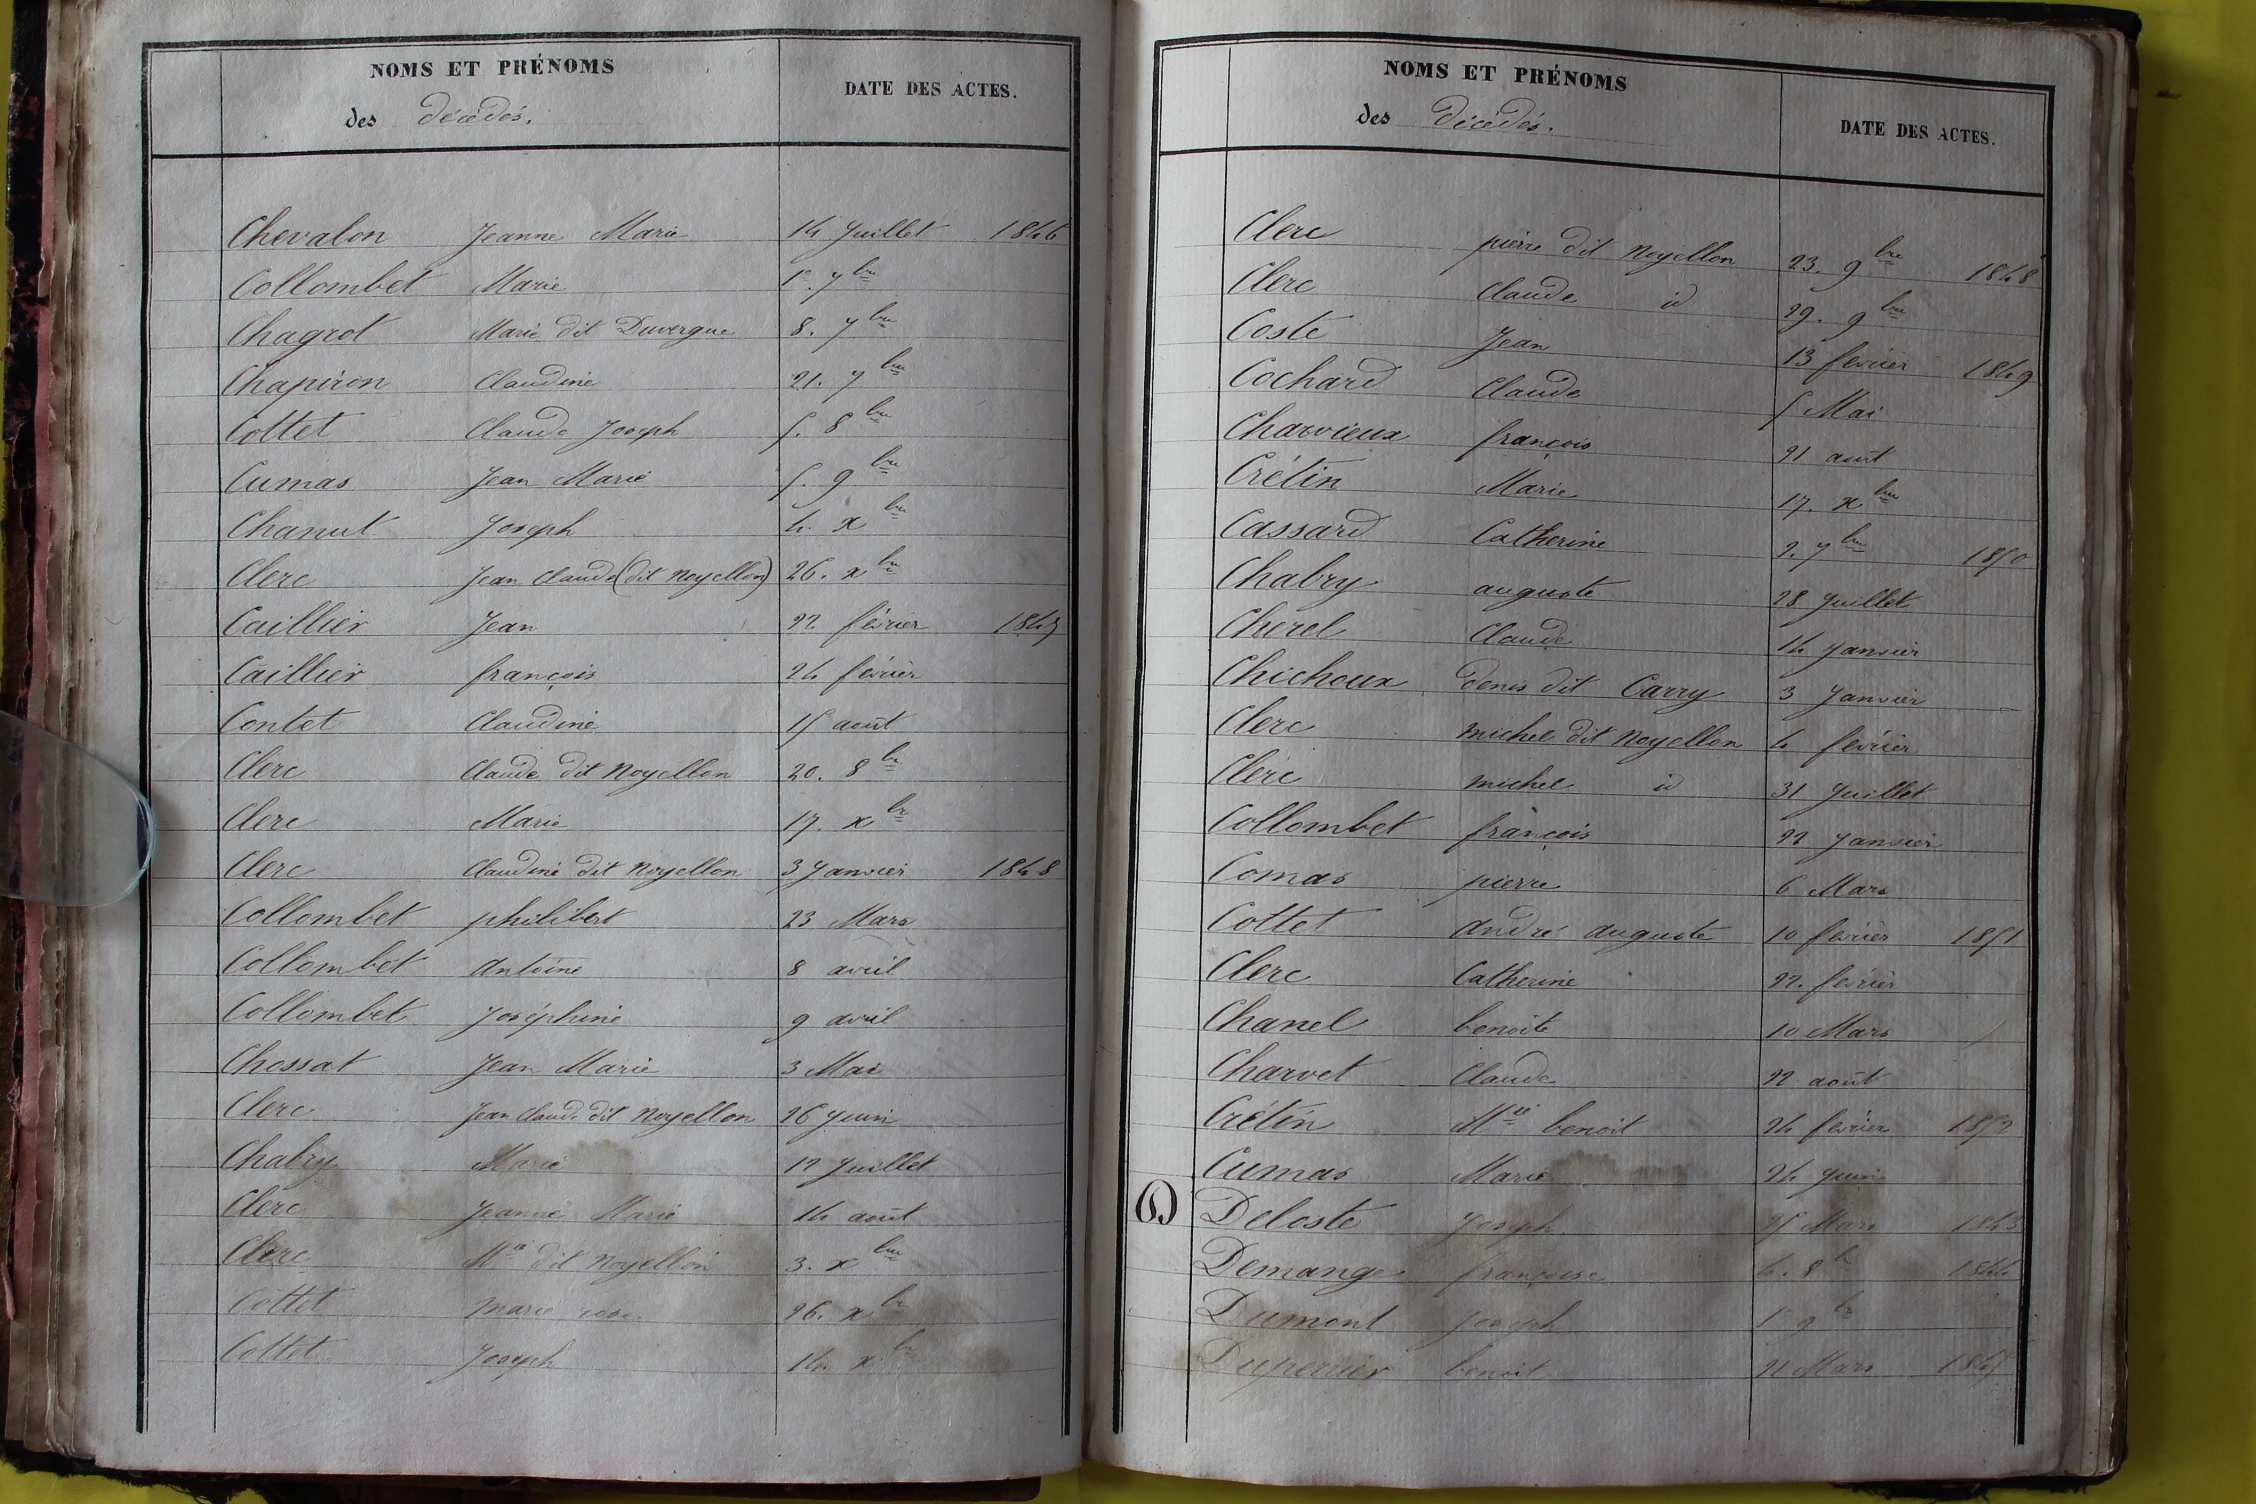 NOMS ET PRÉNOMS
des décédés.
DATE DES ACTES.
Chevalon Jeanne Marie 14 Juillet 1846
Collombet Marie 1er. 7bre
Chagrot Marie dit Duvergne 8. 7bre
Chapiron Claudine 21. 7bre
Cottet Claude Joseph 5. 8bre
Cumas Jean Marie 5. 9bre
Chanut Joseph 4. xbre
Clerc Jean Claude (dit Noyellon) 26. xbre
Caillier Jean 22 février 1847
Caillier françois 24 février
Contet Claudine 15 août
Clerc Claude dit Noyellon 20. 8bre
Clerc Marie 17. xbre
Clerc Claudine dit Noyellon 3 Janvier 1848
Collombet philibert 23 Mars
Collombet Antoine 8 avril
Collombet Joséphine 9 avril
Chossat Jean Marie 3 Mai
Clerc Jean Claude dit Noyellon 26 Juin
Chabry Marie 12 Juillet
Clerc Jeanne Marie 14 août
Clerc Mie dit Noyellon 3. xbre
Cottet marie rose 26. xbre
Cottet Joseph 14. xbre
NOMS ET PRÉNOMS
des décédés.
DATE DES ACTES.
Clerc pierre dit Noyellon 23. 9bre 1848
Clerc Claude id 29. 9bre
Coste Jean 13 fevrier 1849
Cochard Claude 5 Mai
Charvieux françois 21 août
Crétin Marie 17. xbre
Cassard Catherine 2. 7bre 1850
Chabry auguste 28 Juillet
Cherel Claude 14 Janvier
Chichoux denis dit Carry 3 Janvier
Clerc michel dit Noyellon 4 février
Clerc michel id 31 Juillet
Collombet françois 22 Janvier
Comas pierre 6 Mars
Cottet andré auguste 10 fevrier 1851
Clerc Catherine 22. fevrier
Chanel benoite 10 Mars
Charvet Claude 22 août
Crétin Mie benoit 24 fevrier 1852
Cumas Marie 24 Juin
D Deloste Joseph 25 Mars 1843
Demange françoise 4. 8bre 1844
Dumont Joseph 1er 9bre
Duperrier benoit 21 Mars 1845